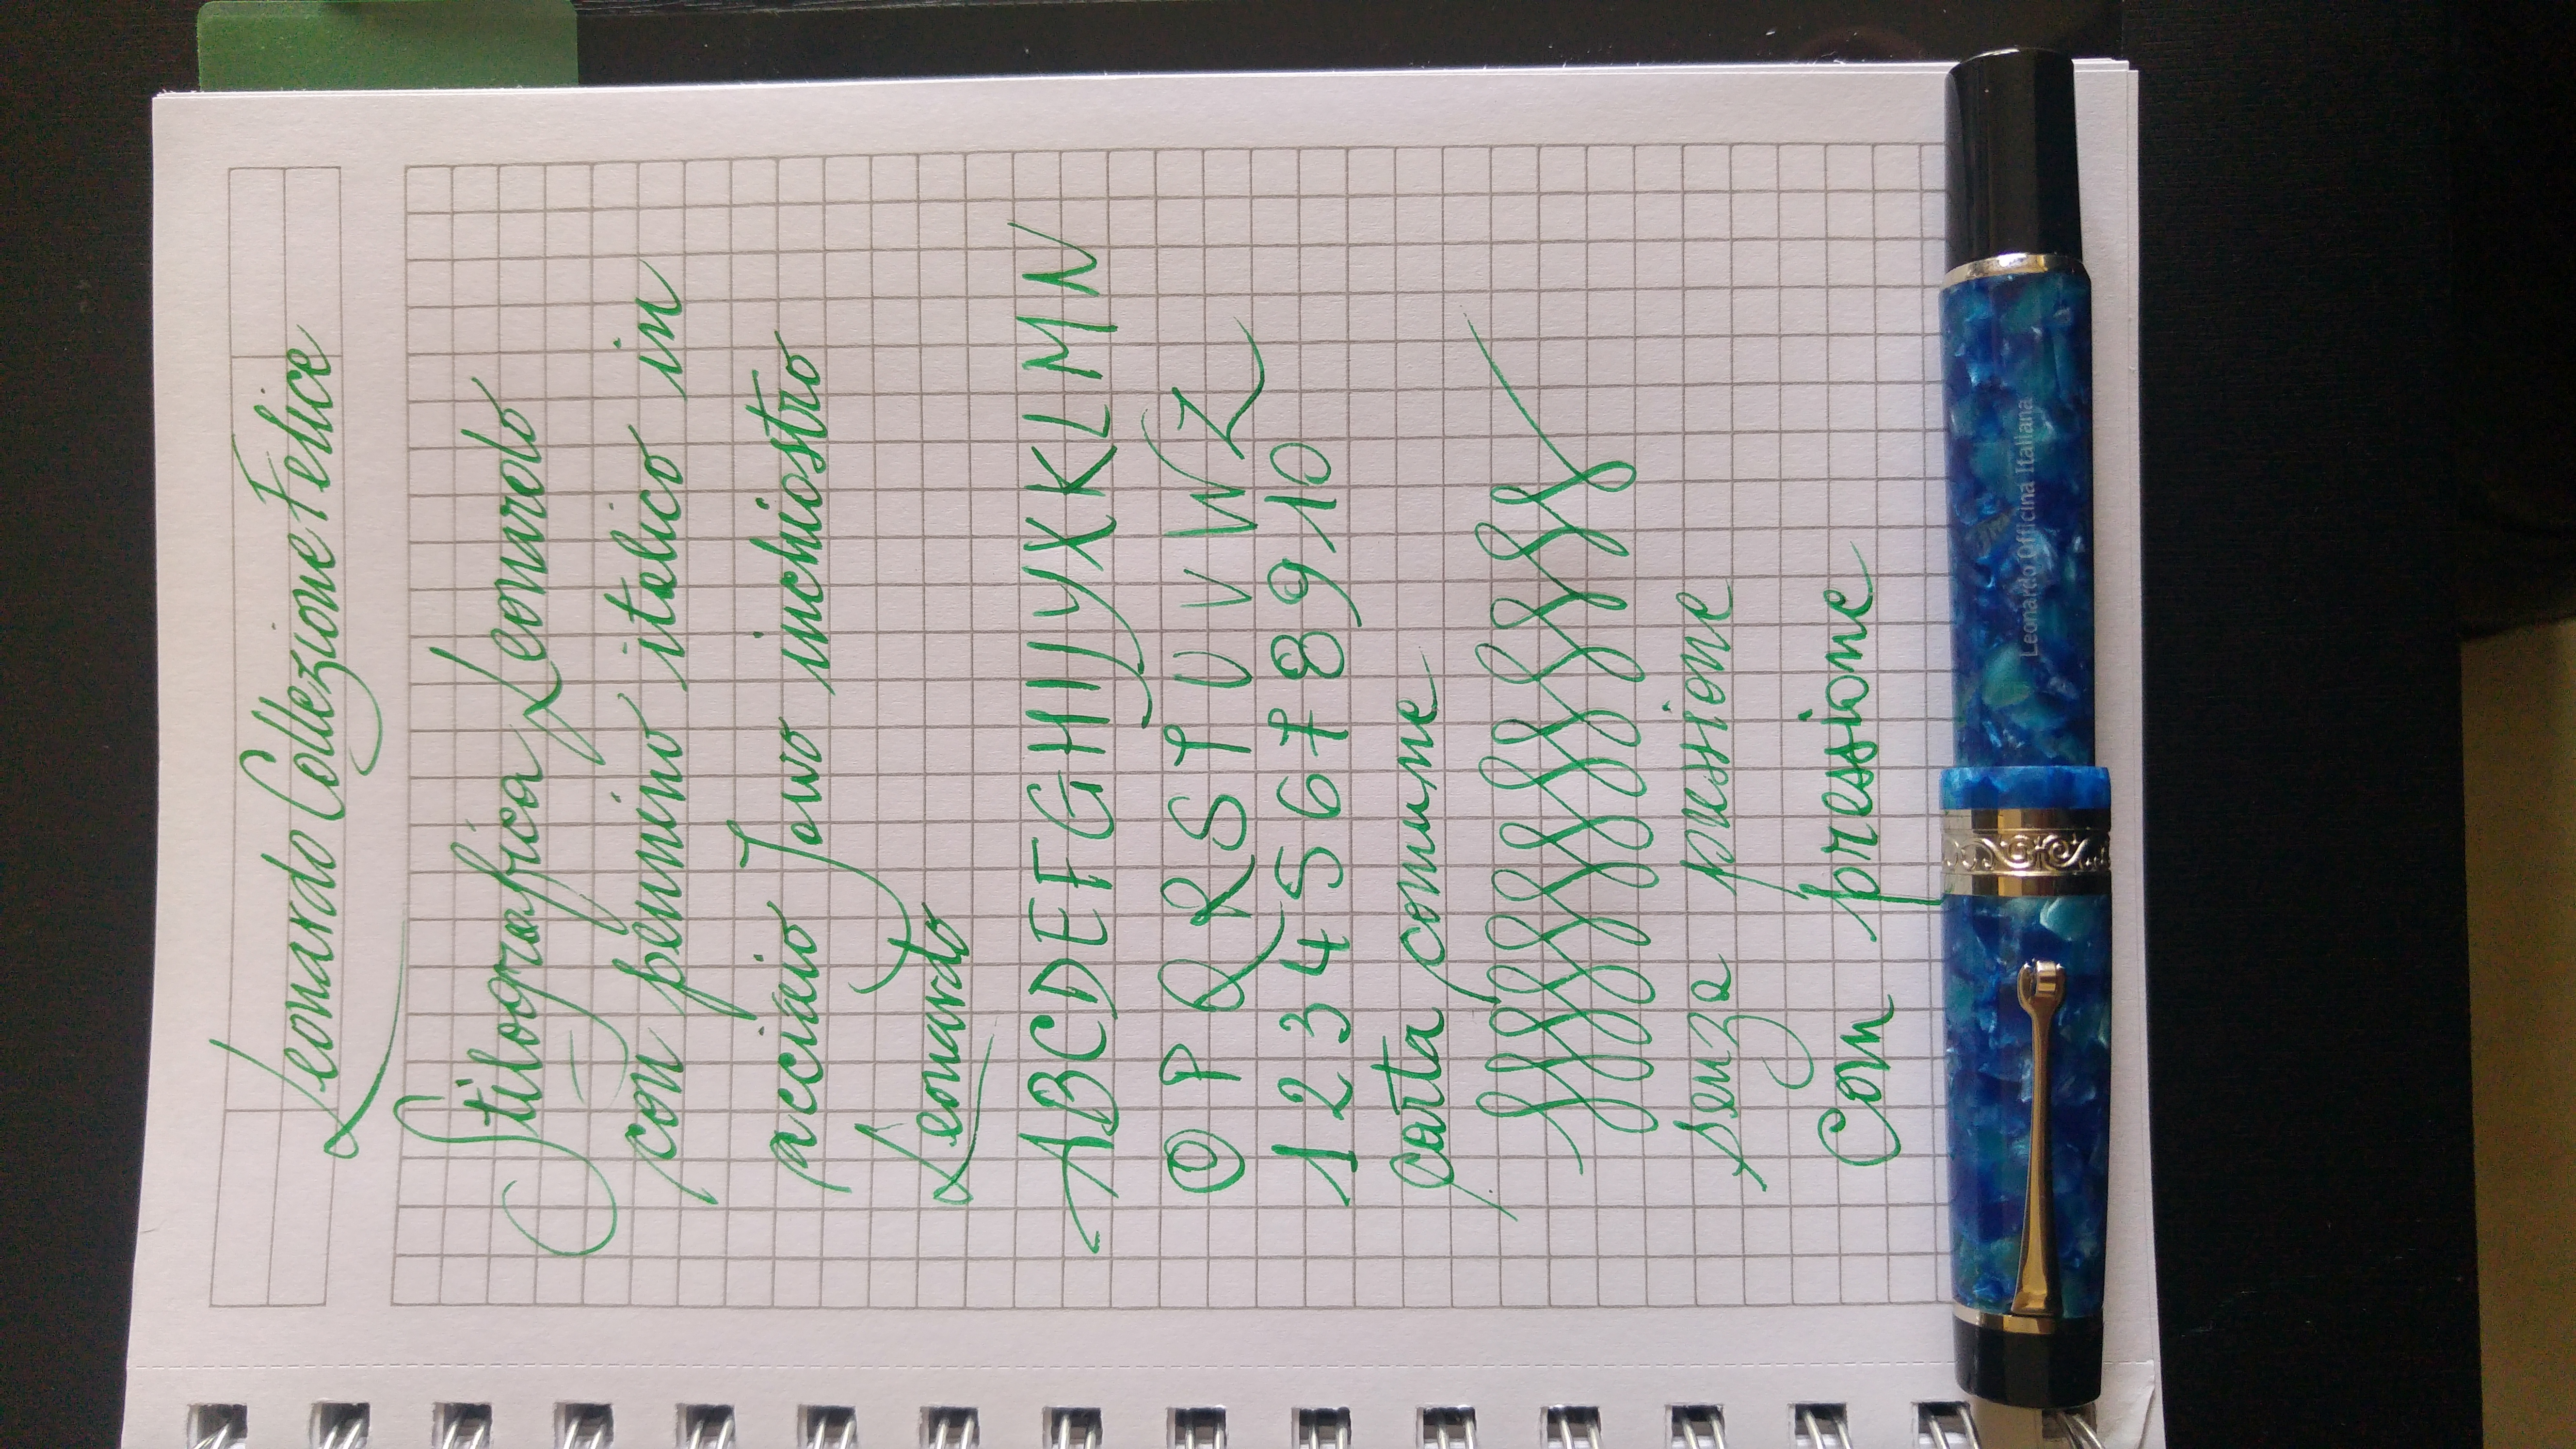 Leonardo Collezione Felice
Stilografica Leonardo
con pennino italico in
acciaio Jowo inchiostro
Leonardo
ABCDEFGHIJYXKLMN
OPQRSTUVWZ
12345678910
carta comune
senza pressione
Con pressione
Leonardo Officina Italiana